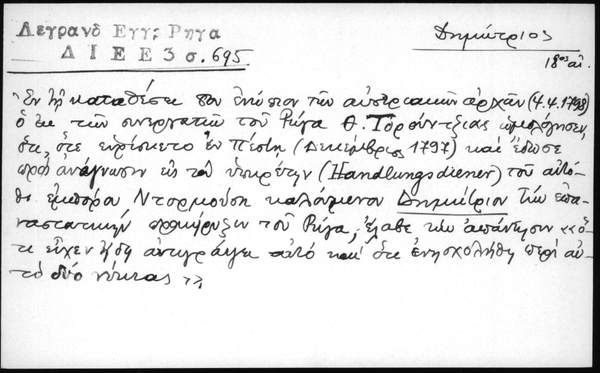 Λεγρανδ Εγγρ Ρηγα
Δ Ι Ε Ε 3 σ. 695.
Δημήτριος
18ος αἰ.
Ἐν τῇ καταθέσει του ἐνώπιον τῶν αὐστριακῶν ἀρχῶν (4.4.1798)
ὁ ἐκ τῶν συνεργατῶν τοῦ Ρήγα Θ. Τουρούντζιας ὡμολόγησεν,
ὅτι, ὅτε εὑρίσκετο ἐν Πέστῃ (Δεκέμβριος 1797) καὶ ἔδωσε
πρὸς ἀνάγνωσιν εἰς τὸν ὑπηρέτην (Handlungsdiener) τοῦ αὐτό-
θι ἐμπόρου Ντορμούση καλούμενον Δημήτριον τὴν ἐπα-
ναστατικὴν προκήρυξιν τοῦ Ρήγα, ἔλαβε τὴν ἀπάντησιν «ὅ-
τι εἶχεν ἤδη ἀντιγράψει αὐτὸ καὶ ὅτι ἐνησχολήθη περὶ αὐ-
τὸ δύο νύκτας».